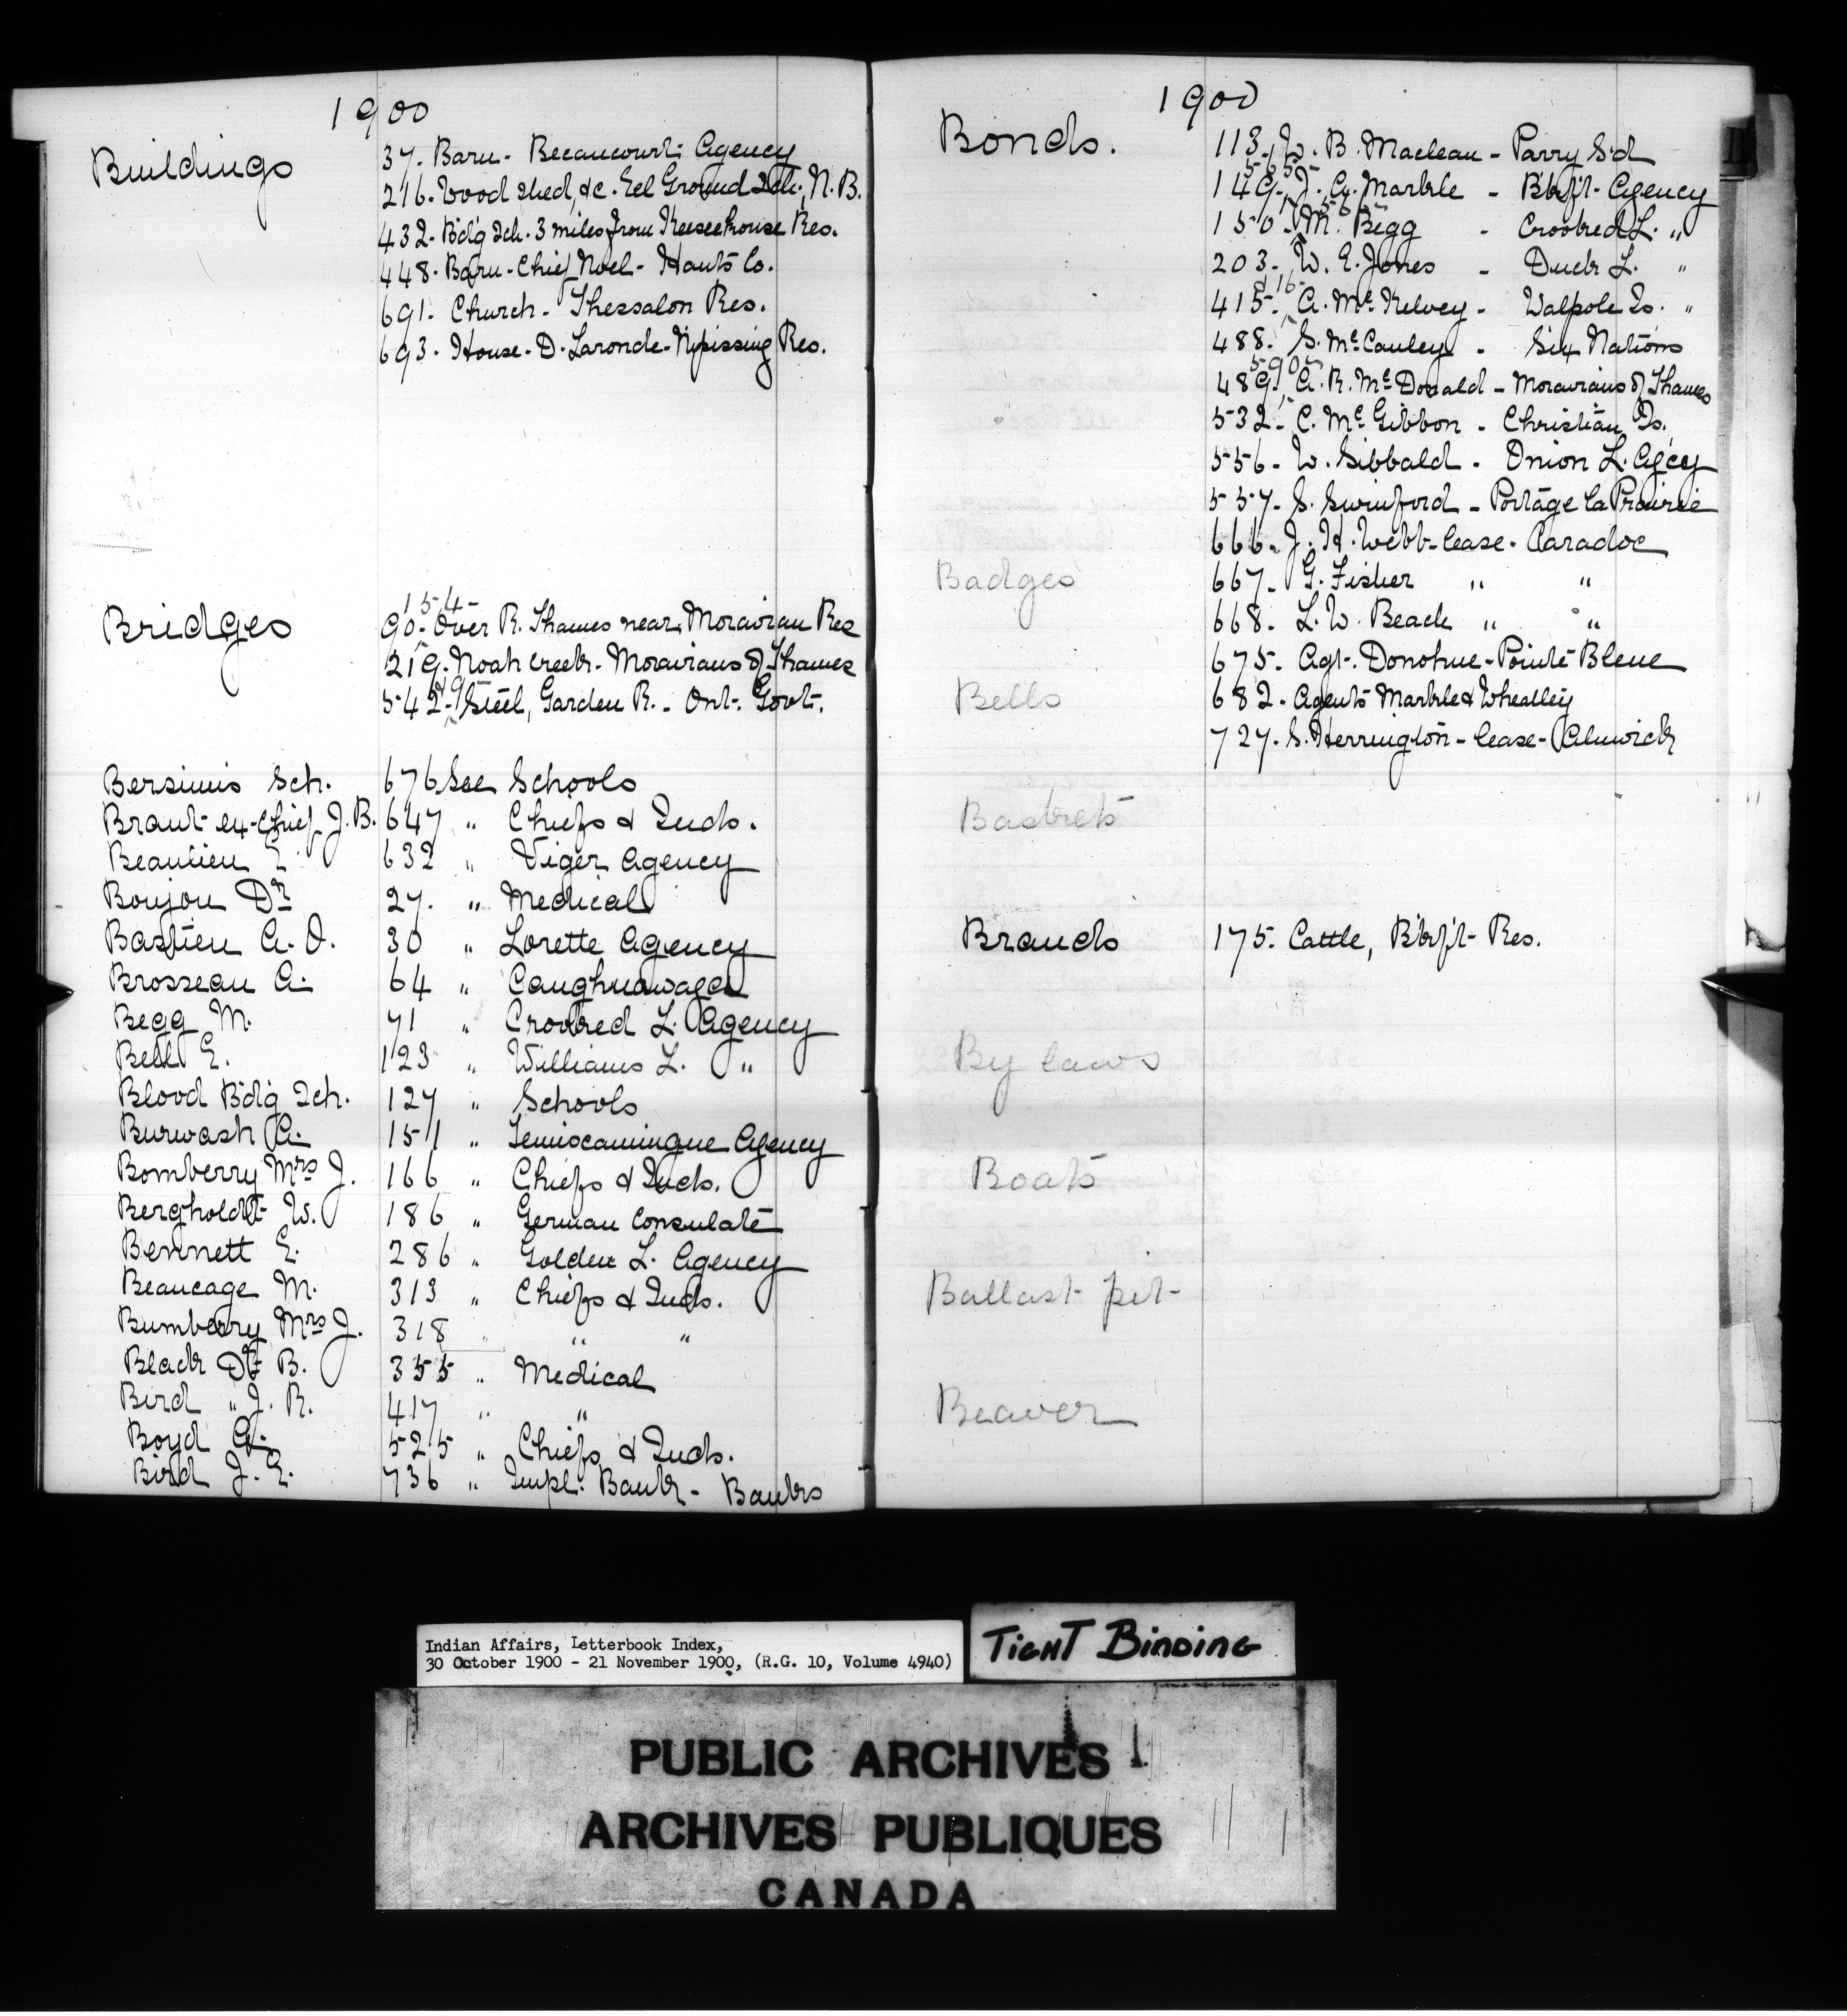 1900
Buildings
37. Barn - Becancourt Agency
216. Wood shed, &c. Eel Ground Sch., N.B.
432. Bdg Sch. 3 miles from Keeseekouse Res.
448. Barn - Chief Noel - Hants Co.
691. Church - Thessalon Res.
693. House - D. Laronde - Nipissing Res.
Bridges
154-
90. Over R. Thames near Moravian Res
219. Noah Creek - Moravians of Thames
542. Steel, Garden R. - Ont. Govt.
Bersimis Sch. 676 See Schools
Brant ex-Chief J.B. 647 " Chiefs & Inds.
Beaulieu 632 " Viger Agency
Boujou Dr 27. " Medical
Bastien A. O. 30 " Lorette Agency
Brosseau A. 64 " Caughnawaga
Begg M. 71 " Crooked L. Agency
Bell E. 123 " Williams L. "
Blood Bdg Sch. 127 " Schools
Burwash A. 151 " Temiscamingue Agency
Bomberry Mrs J. 166 " Chiefs & Inds.
Bergholdt W. 186 " German Consulate
Bennett E. 286 " Golden L. Agency
Beaucage M. 313 " Chiefs & Inds.
Bumberry Mrs J. 318 " " "
Black Dr B. 355 " Medical
Bird " J. R. 417 " "
Boyd G. 525 " Chiefs & Inds.
Bird J. E. 736 " Impl. Bank - Banks
1900
Bonds.
113. W. B. Maclean - Parry Sd
565
149. J. G. Marble - Bkft Agency
150. M. Begg - Crooked L. "
203. W. E. Jones - Duck L. "
416
415. A. McKelvey - Walpole Is. "
488. S. McCauley - Six Nations
590
489. A. R. McDonald - Moravians of Thames
532. C. McGibbon - Christian Is.
556. W. Sibbald - Onion L. Agcy
557. S. Swinford - Portage la Prairie
666. J. H. Webb - lease - Caradoc
Badges
667. G. Fisher " "
668. L. W. Beach " "
675. Agt. Donohue - Pointe Bleue
Bells
682. Agents Marble & Wheatley
727. S. Herrington - lease - Alnwick
Baskets
Brands
175. Cattle, Bkft Res.
By laws
Boats
Ballast pit
Beaver
Indian Affairs, Letterbook Index,
30 October 1900 - 21 November 1900, (R.G. 10, Volume 4940)
TIGHT BINDING
PUBLIC ARCHIVES
ARCHIVES PUBLIQUES
CANADA